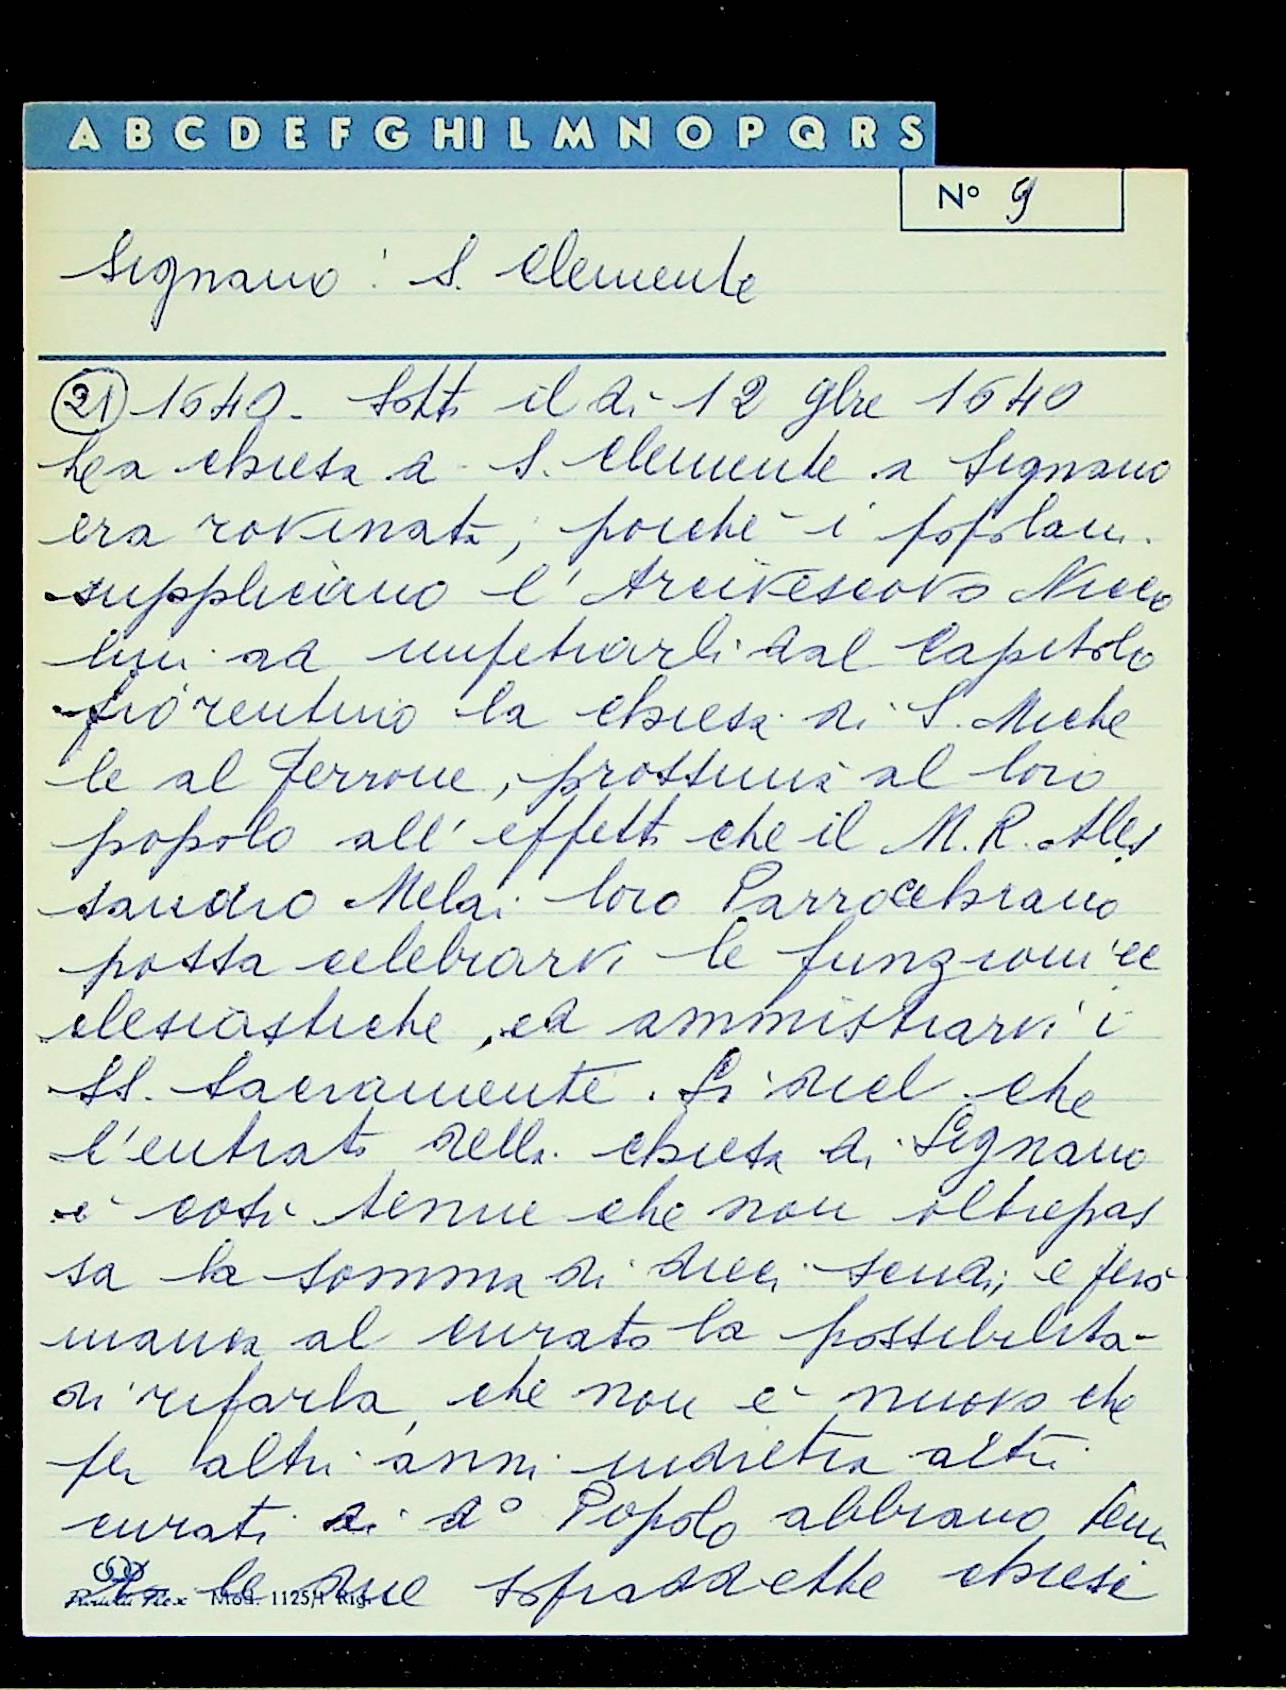 A B C D E F G HI L M N O P Q R S
N° 9
Signano: S. Clemente
21 1640. Sotto il dì 12 9bre 1640
La chiesa di S. Clemente a Signano
era rovinata, poiché i popolani
supplicano l'Arcivescovo Nicco
lini ad impetrarli dal Capitolo
fiorentino la chiesa di S. Miche
le al Ferrone, prossima al loro
popolo all'effetto che il M. R. Ales
sandro Melai loro Parrocchiano
possa celebrarvi le funzioni ec
clesiastiche, ed amministrarvi i
SS. Sacramente. Si dice che
l'entrata della chiesa di Signano
è così tenue che non oltrepas
sa la somma di dieci scudi, e però
manca al curato la possibilità
di rifarla, che non è nuovo che
per altri anni indietro altri
curati di d° Popolo abbiano tenu
to le due sopraddette chiese
Mod. 1125/1 Rig.